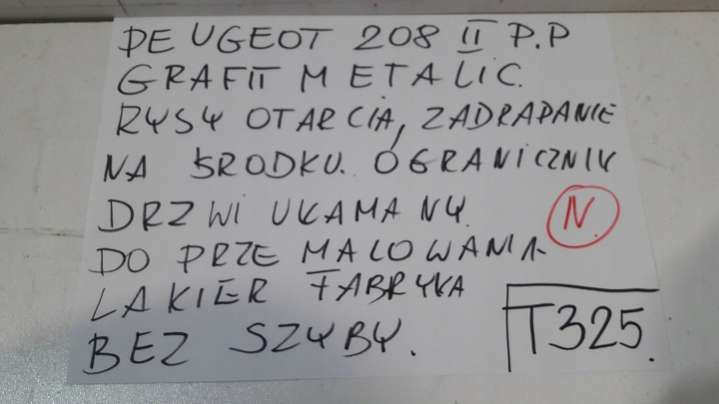 PEUGEOT 208 II P.P
GRAFIT METALIC.
RYSY OTARCIA, ZADRAPANIE
NA ŚRODKU. OGRANICZNIK
DRZWI UŁAMANY.
N.
DO PRZEMALOWANIA
LAKIER FABRYKA
BEZ SZYBY.
T325.